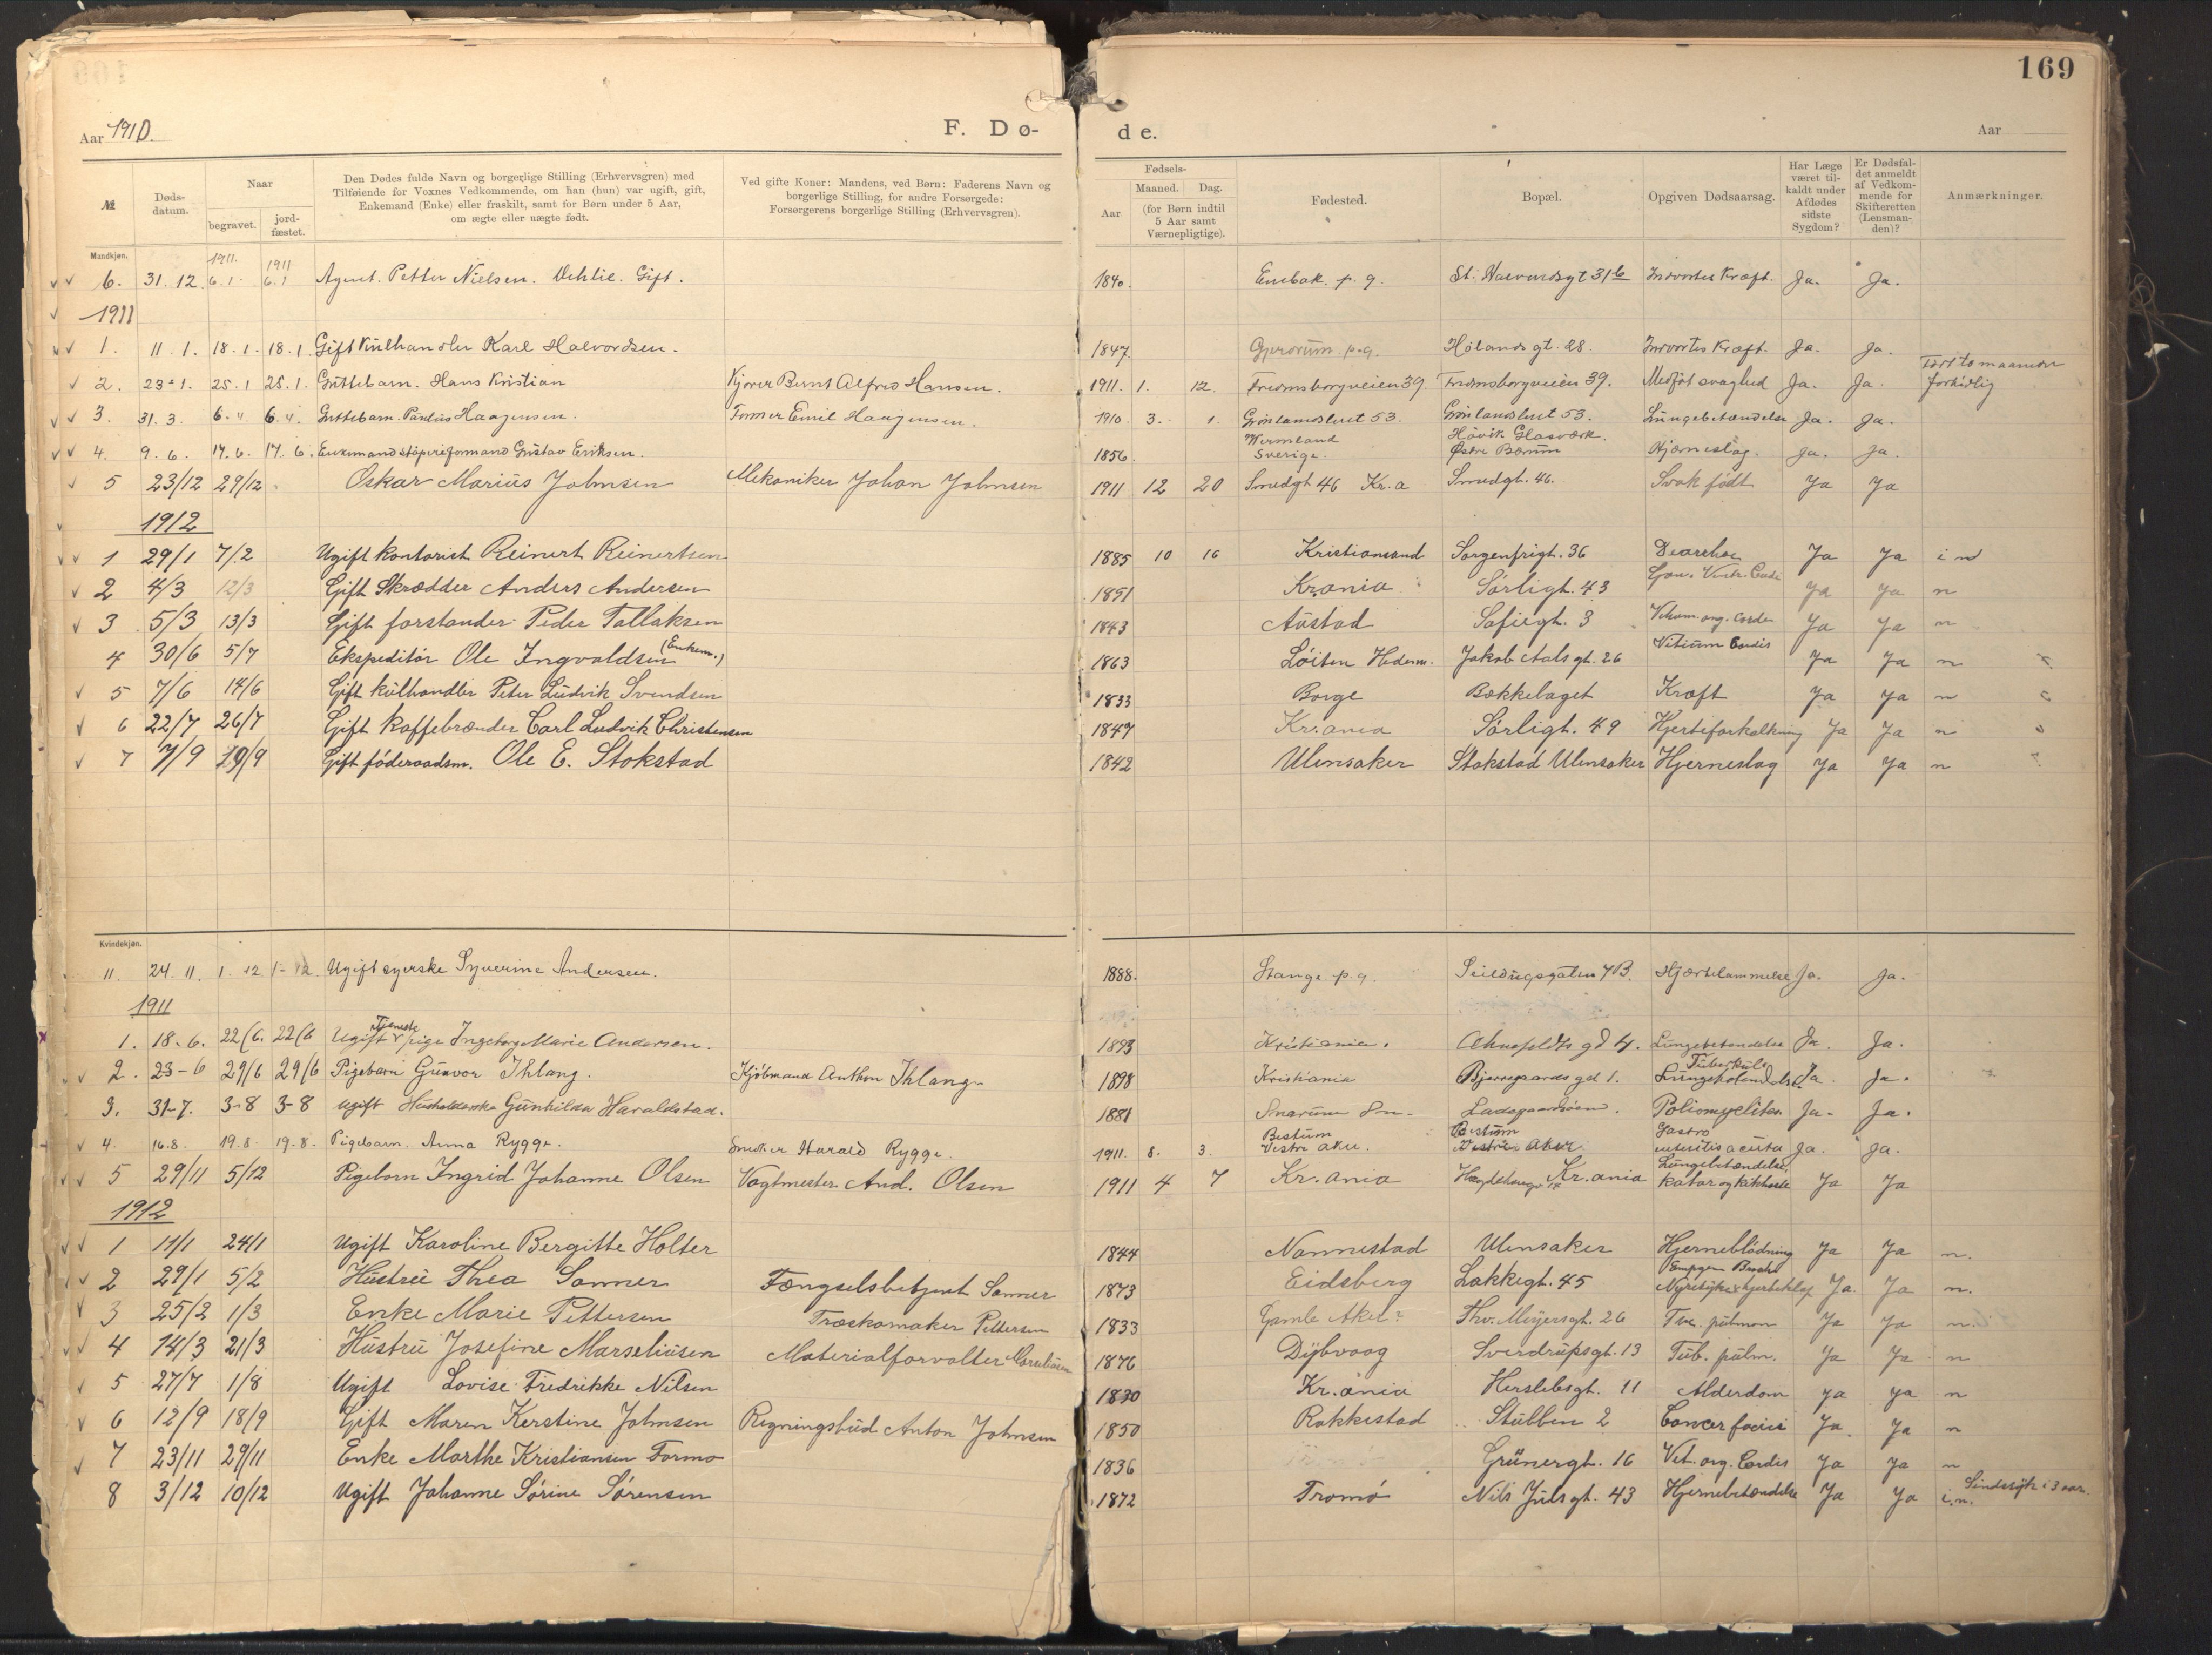 169
Aar 1910.
F. Dø-
de.
Aar
№
Døds-datum.
Naar
begravet.
jord-fæstet.
Den Dødes fulde Navn og borgerlige Stilling (Erhvervsgren) med
Tilføiende for Voxnes Vedkommende, om han (hun) var ugift, gift,
Enkemand (Enke) eller fraskilt, samt for Børn under 5 Aar,
om ægte eller uægte født.
Ved gifte Koner: Mandens, ved Børn: Faderens Navn og
borgerlige Stilling, for andre Forsørgede:
Forsørgerens borgerlige Stilling (Erhvervsgren).
Fødsels-
Aar
Maaned.
Dag.
(for Børn indtil
5 Aar samt
Værnepligtige).
Fødested.
Bopæl.
Opgiven Dødsaarsag.
Har Læge
været til-
kaldt under
Afdødes
sidste
Sygdom?
Er Dødsfal-
det anmeldt
af Vedkom-
mende for
Skifteretten
(Lensman-
den)?
Anmærkninger.
Mandkjøn.
1911. 1911
6. 31.12. 6.1. 6.1 Agent. Petter Nielsen. Dehlie. Gift. 1840. Enebak. p.g. St. Halvardsgt 31b Indvortes Kræft. Ja. Ja.
1911
1. 11.1. 18.1. 18.1. Gift Kulhandler Karl Halvordsen. 1847. Gjerdrum p.g. Hølandsgt. 28. Indvortes Kræft. Ja. Ja.
2. 23.1. 25.1 25.1. Guttebarn. Hans Kristian Kjører Bernt Alfred Hansen. 1911. 1. 12. Fredensborgveien 39. Fredensborgveien 39. Medfødt svaghed Ja. Ja. Født to maaneder
fortidlig
3. 31.3. 6.4 6.4. Guttebarn. Paulus Haagensen. Former Emil Haagensen. 1910. 3. 1. Grønlandsleret 53. Grønlandsleret 53. Lungebetændelse Ja. Ja.
4. 9.6. 17.6. 17.6. Enkemand støperiformand Gustav Eriksen. 1856. Wermland
Sverige. Høvik Glasværk.
Østre Bærum Hjærneslag. Ja. Ja.
5 23/12 29/12 Oskar Marius Johnsen Mekaniker Johan Johnsen 1911 12 20 Smedgt 46 Kr.a Smedgt. 46. Svak født Ja Ja
1912
1 29/1 7/2 Ugift kontorist Reinert Reinertsen 1885 10 16 Kristiansand Sorgenfrigt. 36 Ja Ja i n
2 4/3 12/3 Gift Skrædder Anders Andersen 1851 Kr.ania Sørligt. 43 Ja Ja n
3 5/3 13/3 Gift forstander Peder Tallaksen 1843 Austad Sofiegt. 3 Ja Ja n
4 30/6 5/7 Ekspeditør Ole Ingvaldsen (Enkem.) 1863 Løiten Hedem. Jakob Aals gt. 26 Vitium Cordis Ja Ja n
5 7/6 14/6 Gift kulhandler Peter Ludvik Svendsen 1833 Borge Bækkelaget Kræft Ja Ja n
6 22/7 26/7 Gift kaffebrænder Carl Ludvik Christensen 1847 Kr.ania Sørligt. 49 Hjerteforkalkning Ja Ja n
7 7/9 10/9 Gift føderaadsm. Ole E. Stokstad 1842 Ulensaker Stokstad Ulensaker Hjerneslag Ja Ja n
Kvindekjøn.
11. 24.11. 1.12 1-12. Ugift syerske Syverine Andersen. 1888. Stange p.g. Seildugsgaten 7B. Hjærtelammelse Ja. Ja.
1911
1. 18.6. 22/6. 22/6 Ugift Tjenestepige Ingeborg Marie Andersen. 1893 Kristiania. Ahnefeldts gd 4. Lungebetændelse Ja. Ja.
2. 23-6 29/6 29/6 Pigebarn Gunvor Ihlang. Kjøbmand Anthon Ihlang. 1898 Kristiania Bjerregaards gd 1. Tuberkuløs
Lungebetændelse Ja. Ja.
3. 31-7. 3-8 3-8 Ugift Husholderske Gunhilda Haraldstad. 1881 Snarum Ladegaardsøen. Poliomyelites Ja. Ja.
4. 16.8. 19.8. 19.8. Pigebarn. Anna Rygge. Snedker Harald Rygge. 1911. 8. 3. Bestum
Vestre Aker. Bestum
Vestre Aker. Gastro
enteritis acuta Ja. Ja.
5 29/11 5/12 Pigebarn Ingrid Johanne Olsen Vagtmester And. Olsen 1911 4 7 Kr.ania Kr.ania Lungebetændelse,
katar og kikhoste Ja Ja
1912
1 11/1 24/1 Ugift Karoline Bergitte Holter 1844 Nannestad Ulensaker Hjerneblødning Ja Ja n.
2 29/1 5/2 Hustru Thea Sanner Fængselsbetjent Sanner 1873 Eidsberg Lakkegt. 45 Nyresyke Ja. Ja n.
3 25/2 1/3 Enke Marie Pettersen Træskomaker Pettersen 1833 Gamle Aker? Thv. Meyersgt. 26 Ja Ja n.
4 14/3 21/3 Hustru Josefine Marseliusen Materialforvalter Marseliusen 1876 Dybvaag Sverdrupsgt. 13 Tub. pulm. Ja Ja n
5 27/7 1/8 Ugift Lovise Fredrikke Nilsen 1830 Kr.ania Herslebsgt. 11 Alderdom Ja Ja n
6 12/9 18/9 Gift Maren Kerstine Johnsen Regningsbud Anton Johnsen 1850 Rakkestad Stubben 2 Cancer faciei Ja. Ja n
7 23/11 29/11 Enke Marthe Kristiansen Formo 1836 Grünergt. 16 Vit. org. Cordis Ja Ja n
8 3/12 10/12 Ugift Johanne Sørine Sørensen 1872 Tromø Nils Juels gt. 43 Hjernebetændelse Ja Ja i.n. Sindssyk i 3 aar.